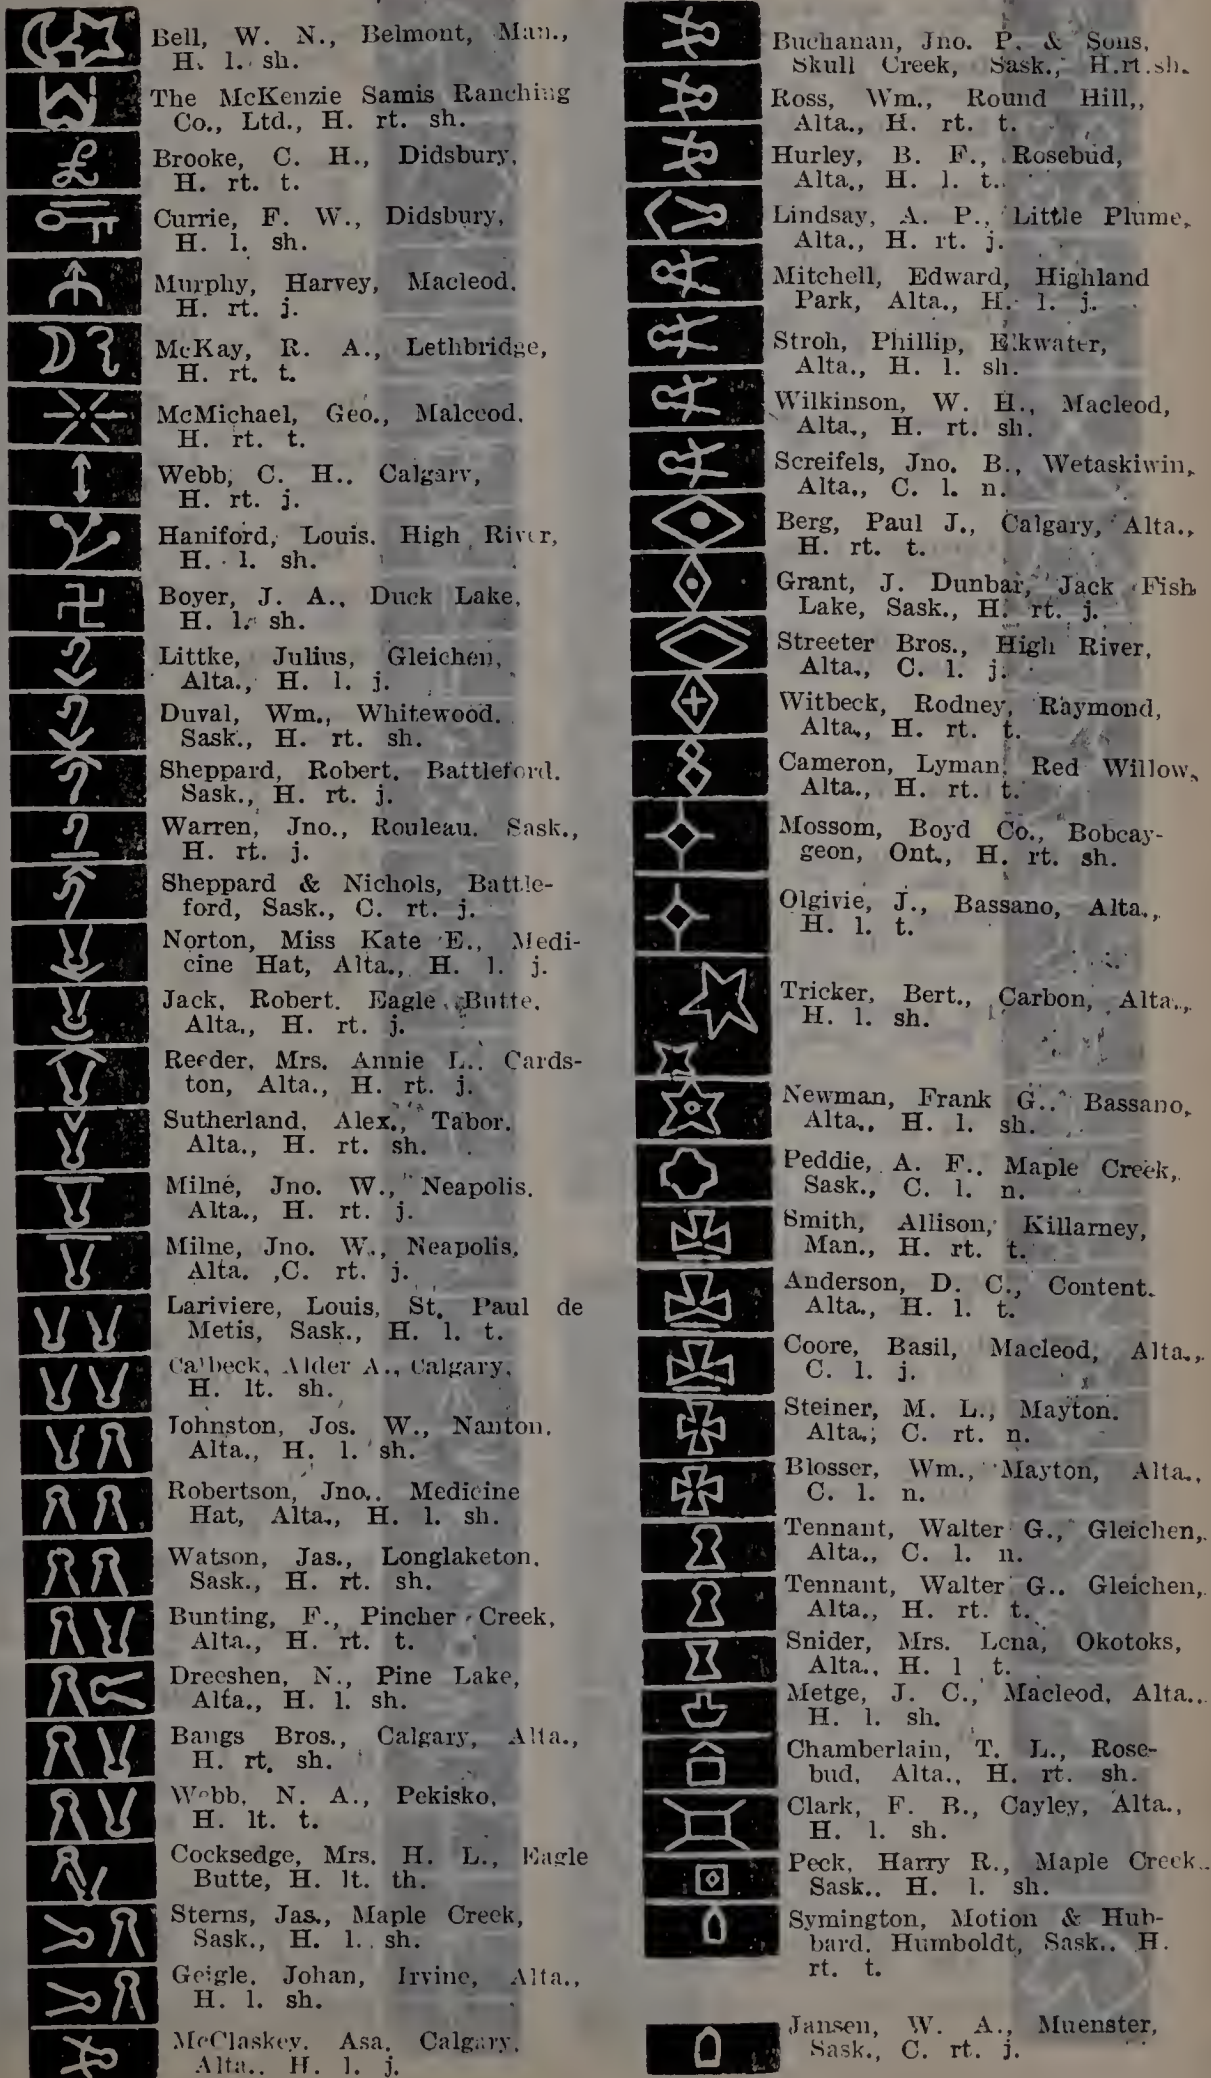 Bell, W. N., Belmont, Man.,
H. l. sh.
The McKenzie Samis Ranching
Co., Ltd., H. rt. sh.
Brooke, C. H., Didsbury,
H. rt. t.
Currie, F. W., Didsbury,
H. l. sh.
Murphy, Harvey, Macleod.
H. rt. j.
McKay, R. A., Lethbridge,
H. rt. t.
McMichael, Geo., Malceod.
H. rt. t.
Webb, C. H.. Calgary,
H. rt. j.
Haniford, Louis. High River,
H. l. sh.
Boyer, J. A., Duck Lake,
H. l. sh.
Littke, Julius, Gleichen,
Alta., H. l. j.
Duval, Wm., Whitewood.
Sask., H. rt. sh.
Sheppard, Robert. Battleford.
Sask., H. rt. j.
Warren, Jno., Rouleau. Sask.,
H. rt. j.
Sheppard & Nichols, Battle-
ford, Sask., C. rt. j.
Norton, Miss Kate E., Medi-
cine Hat, Alta., H. l. j.
Jack, Robert. Eagle Butte.
Alta., H. rt. j.
Reeder, Mrs. Annie L.. Cards-
ton, Alta., H. rt. j.
Sutherland, Alex., Tabor.
Alta., H. rt. sh.
Milne, Jno. W., Neapolis.
Alta., H. rt. j.
Milne, Jno. W., Neapolis,
Alta. ,C. rt. j.
Lariviere, Louis, St. Paul de
Metis, Sask., H. l. t.
Calbeck, Alder A., Calgary,
H. lt. sh.
Johnston, Jos. W., Nanton.
Alta., H. l. sh.
Robertson, Jno.. Medicine
Hat, Alta., H. l. sh.
Watson, Jas., Longlaketon.
Sask., H. rt. sh.
Bunting, F., Pincher Creek,
Alta., H. rt. t.
Dreeshen, N., Pine Lake,
Alta., H. l. sh.
Bangs Bros., Calgary, Alta.,
H. rt. sh.
Webb, N. A., Pekisko,
H. lt. t.
Cocksedge, Mrs. H. L., Eagle
Butte, H. lt. th.
Sterns, Jas., Maple Creek,
Sask., H. l. sh.
Geigle. Johan, Irvine, Alta.,
H. l. sh.
McClaskey. Asa. Calgary.
Alta.. H. l. j.
Buchanan, Jno. P. & Sons,
Skull Creek, Sask., H.rt.sh.
Ross, Wm., Round Hill,,
Alta., H. rt. t.
Hurley, B. F., Rosebud,
Alta., H. l. t.
Lindsay, A. P., Little Plume,
Alta., H. rt. j.
Mitchell, Edward, Highland
Park, Alta., H. l. j.
Stroh, Phillip, Elkwater,
Alta., H. l. sh.
Wilkinson, W. H., Macleod,
Alta., H. rt. sh.
Screifels, Jno. B., Wetaskiwin,
Alta., C. l. n.
Berg, Paul J., Calgary, Alta.,
H. rt. t.
Grant, J. Dunbar, Jack Fish
Lake, Sask., H. rt. j.
Streeter Bros., High River,
Alta., C. l. j.
Witbeck, Rodney, Raymond,
Alta., H. rt. t.
Cameron, Lyman, Red Willow,
Alta., H. rt. t.
Mossom, Boyd Co., Bobcay-
geon, Ont., H. rt. sh.
Olgivie, J., Bassano, Alta.,
H. l. t.
Tricker, Bert., Carbon, Alta.,
H. l. sh.
Newman, Frank G.. Bassano,
Alta., H. l. sh.
Peddie, A. F., Maple Creek,
Sask., C. l. n.
Smith, Allison, Killarney,
Man., H. rt. t.
Anderson, D. C., Content.
Alta., H. l. t.
Coore, Basil, Macleod, Alta.,
C. l. j.
Steiner, M. L., Mayton.
Alta., C. rt. n.
Blosser, Wm., Mayton, Alta.,
C. l. n.
Tennant, Walter G., Gleichen,
Alta., C. l. n.
Tennant, Walter G.. Gleichen,
Alta., H. rt. t.
Snider, Mrs. Lena, Okotoks,
Alta., H. l t.
Metge, J. C., Macleod, Alta..
H. l. sh.
Chamberlain, T. L., Rose-
bud, Alta., H. rt. sh.
Clark, F. B., Cayley, Alta.,
H. l. sh.
Peck, Harry R., Maple Creek..
Sask.. H. l. sh.
Symington, Motion & Hub-
bard. Humboldt, Sask.. H.
rt. t.
Jansen, W. A., Muenster,
Sask., C. rt. j.